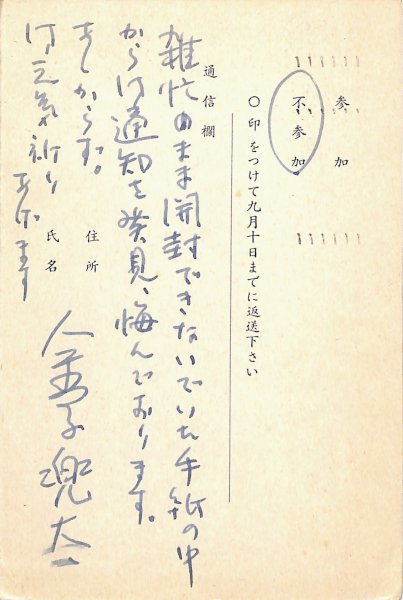 参加
不参加
○印をつけて九月十日までに返送下さい
通信欄
雑忙のまま開封できないでいた手紙の中
から御通知を発見、悔んでおります。
あしからず。
御元気祈りあげます
住所
氏名
金子兜太